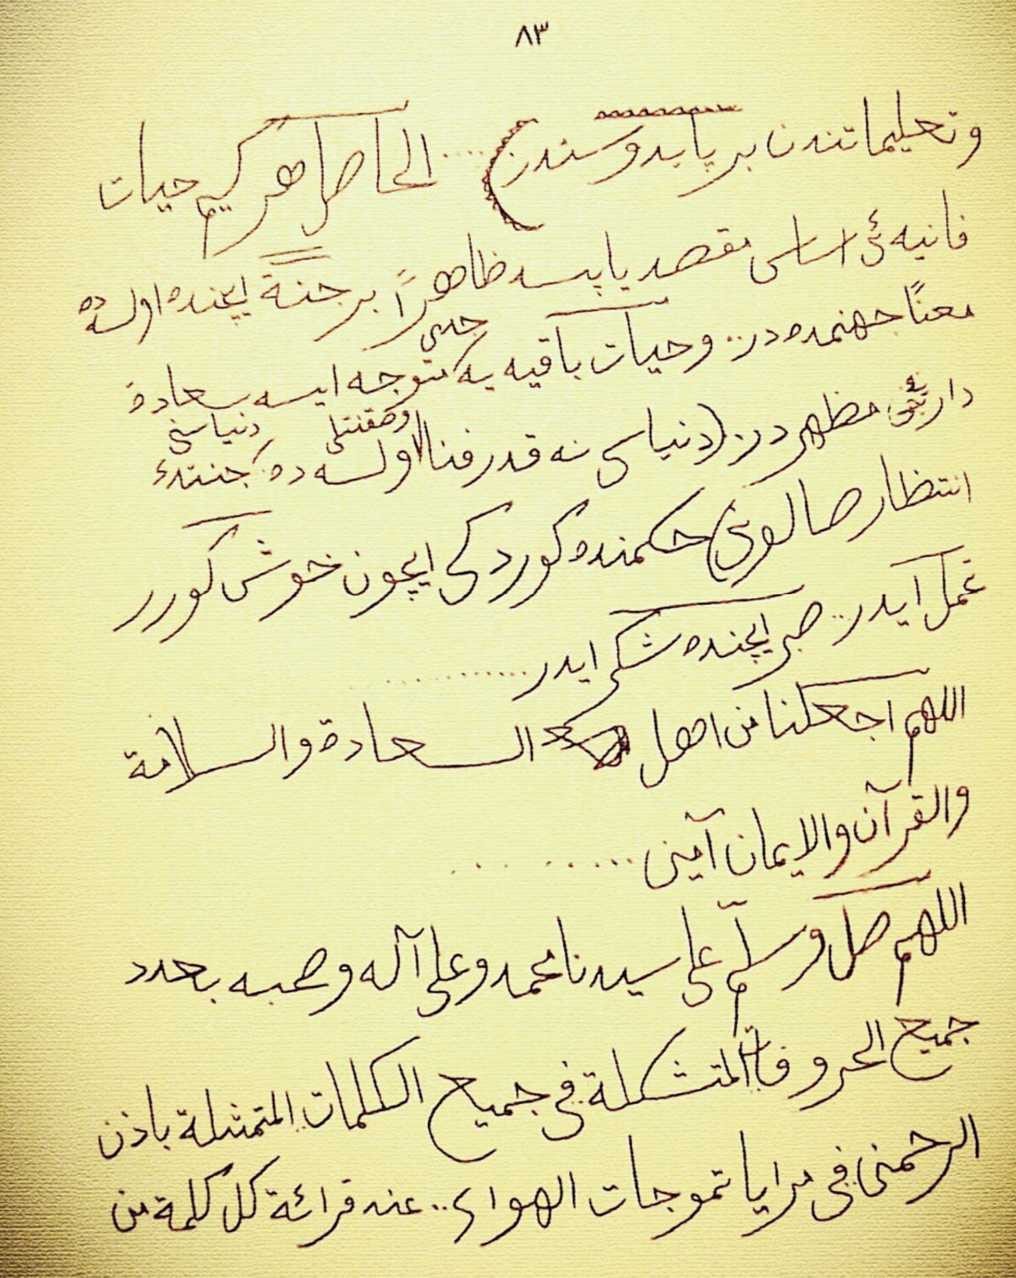 ٨٣
و تعليماتندن بر پابدوسندن) .... الحاصل هر كيم حيات
فانيه‌ئى اساسى مقصد ياپسه ظاهراً بر جنة ايچنده اولسه ده
معناً جهنمده در.. و حيات باقيه يه جدى متوجه ايسه سعادة
دارينئ مظهردر. (دنياسى نه قدر فنا و صقنتلى اولسه ده. دنياسنى جنتئ
انتظار صالونى) حكمنده كورديكى ايچون خوش كورر
تحمل ايدر.. صبر ايچنده شكر ايدر ............
اللهم اجعلنا من اهل السعادة والسلامة
والقرآن والايمان آمين ..........
اللهم صل وسلم على سيدنا محمد وعلى آله وصحبه بعدد
جميع الحروفات المتشكلة فى جميع الكلمات المتمثلة باذن
الرحمن فى مرايا تموجات الهواء.. عند قرائة كل كلمة من